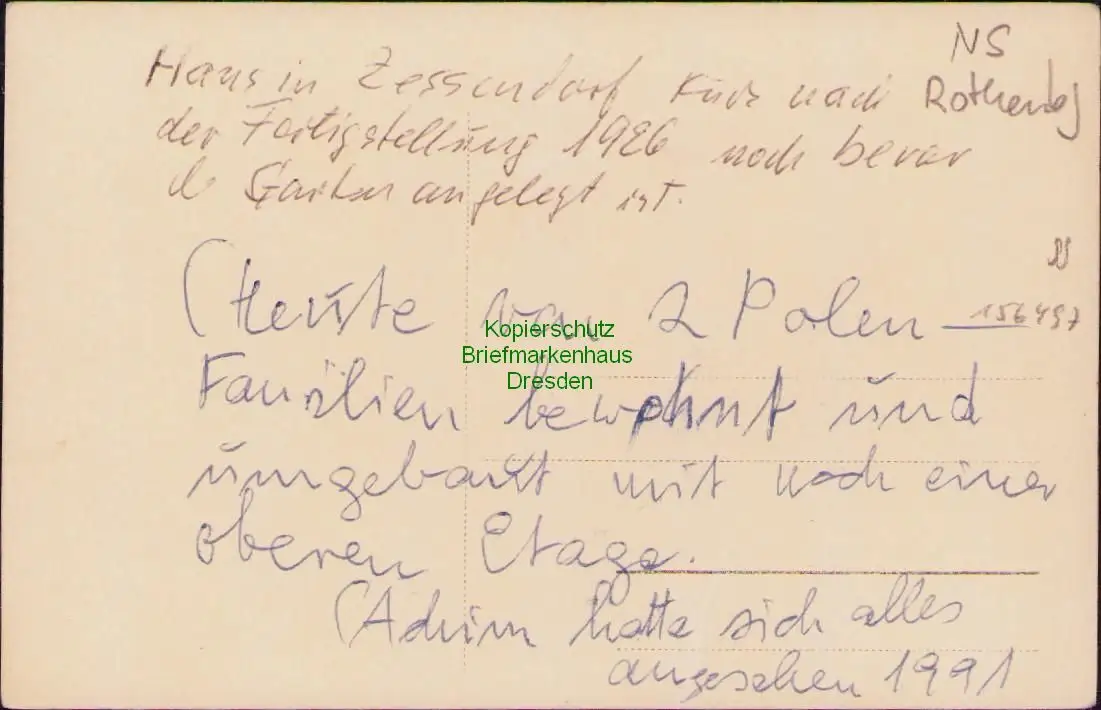 NS
Haus in Zessendorf kurz nach
Rothenbg
der Fertigstellung 1926 noch bevor
de Garten angelegt ist.
(Heute von 2 Polen
156497
Kopierschutz
Briefmarkenhaus
Dresden
Familien bewohnt und
umgebaut mit noch einer
oberen Etage.
(Achim hatte sich alles
angesehen 1991